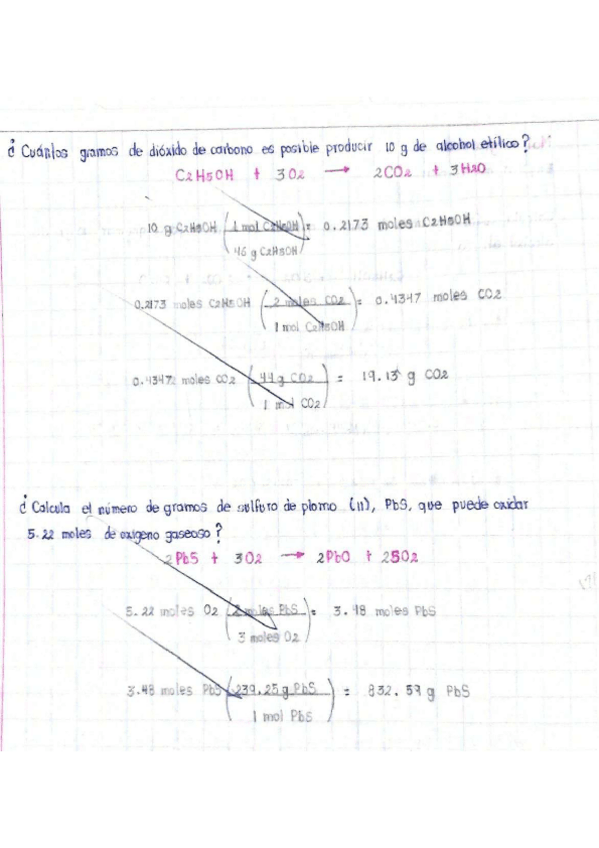 ¿Cuántos gramos de dióxido de carbono es posible producir 10 g de alcohol etílico?
C2H5OH + 3O2 → 2CO2 + 3H2O
10 g C2H5OH (1 mol C2H5OH / 46 g C2H5OH) = 0.2173 moles C2H5OH
0.2173 moles C2H5OH (2 moles CO2 / 1 mol C2H5OH) = 0.4347 moles CO2
0.4347 moles CO2 (44 g CO2 / 1 mol CO2) = 19.13 g CO2
¿Calcula el número de gramos de sulfuro de plomo (II), PbS, que puede oxidar
5.22 moles de oxígeno gaseoso?
2PbS + 3O2 → 2PbO + 2SO2
5.22 moles O2 (2 moles PbS / 3 moles O2) = 3.48 moles PbS
3.48 moles PbS (239.25 g PbS / 1 mol PbS) = 832.59 g PbS